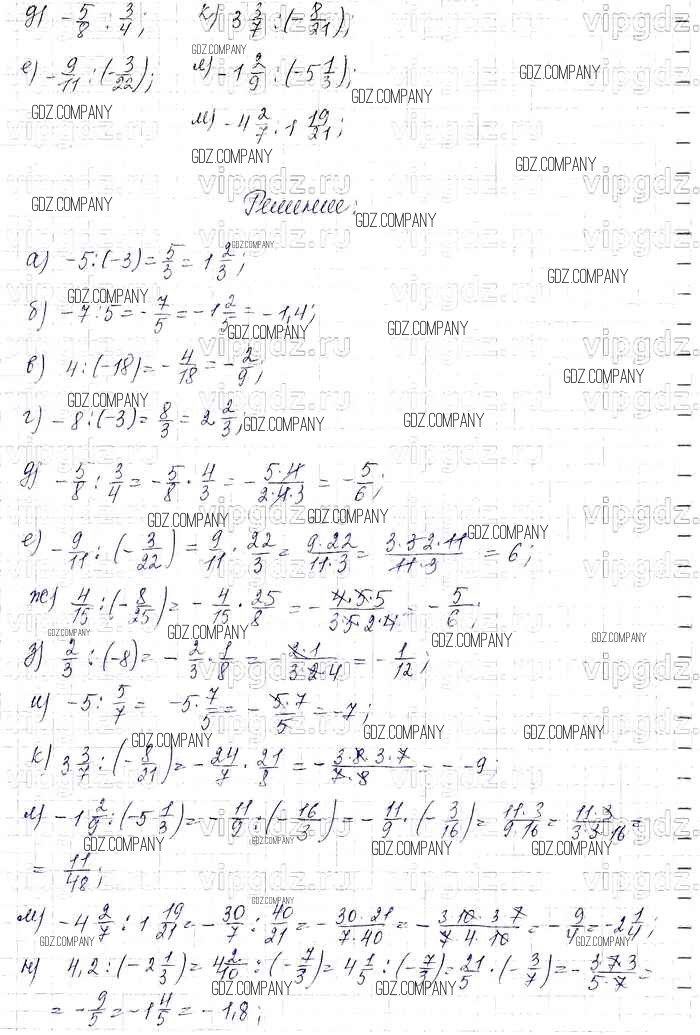 д) -5/8 : 3/4; к) 3 3/7 : (-8/21);
GDZ.COMPANY
е) -9/11 : (-3/22); л) -1 2/9 : (-5 1/3);
GDZ.COMPANY
GDZ.COMPANY
GDZ.COMPANY
м) -4 2/7 : 1 19/21;
GDZ.COMPANY
GDZ.COMPANY
vipgdz.ru
Решение:
GDZ.COMPANY
GDZ.COMPANY
а) -5 : (-3) = 5/3 = 1 2/3;
GDZ.COMPANY
GDZ.COMPANY
б) -7 : 5 = -7/5 = -1 2/5 = -1,4;
GDZ.COMPANY
GDZ.COMPANY
GDZ.COMPANY
в) 4 : (-18) = -4/18 = -2/9;
GDZ.COMPANY
GDZ.COMPANY
г) -8 : (-3) = 8/3 = 2 2/3;
GDZ.COMPANY
GDZ.COMPANY
д) -5/8 : 3/4 = -5/8 · 4/3 = -5·4/2·4·3 = -5/6;
GDZ.COMPANY
GDZ.COMPANY
GDZ.COMPANY
е) -9/11 : (-3/22) = 9/11 · 22/3 = 9·22/11·3 = 3·3·2·11/11·3 = 6;
ж) 4/15 : (-8/25) = -4/15 · 25/8 = -4·5·5/3·5·2·4 = -5/6;
GDZ.COMPANY
GDZ.COMPANY
GDZ.COMPANY
GDZ.COMPANY
з) 2/3 : (-8) = -2/3 · 1/8 = -2·1/3·2·4 = -1/12;
и) -5 : 5/7 = -5 · 7/5 = -5·7/5 = -7;
GDZ.COMPANY
GDZ.COMPANY
GDZ.COMPANY
к) 3 3/7 : (-8/21) = -24/7 · 21/8 = -3·8·3·7/7·8 = - -9;
л) -1 2/9 : (-5 1/3) = -11/9 : (-16/3) = -11/9 · (-3/16) = 11·3/9·16 = 11·3/3·3·16 =
GDZ.COMPANY
GDZ.COMPANY
GDZ.COMPANY
GDZ.COMPANY
= 11/48;
GDZ.COMPANY
м) -4 2/7 : 1 19/21 = -30/7 : 40/21 = -30·21/7·40 = -3·10·3·7/7·4·10 = -9/4 = -2 1/4;
GDZ.COMPANY
GDZ.COMPANY
GDZ.COMPANY
н) 4,2 : (-2 1/3) = 4 2/10 : (-7/3) = 4 1/5 : (-7/3) = 21/5 · (-3/7) = -3·7·3/5·7 =
GDZ.COMPANY
GDZ.COMPANY
= -9/5 = -1 4/5 = -1,8;